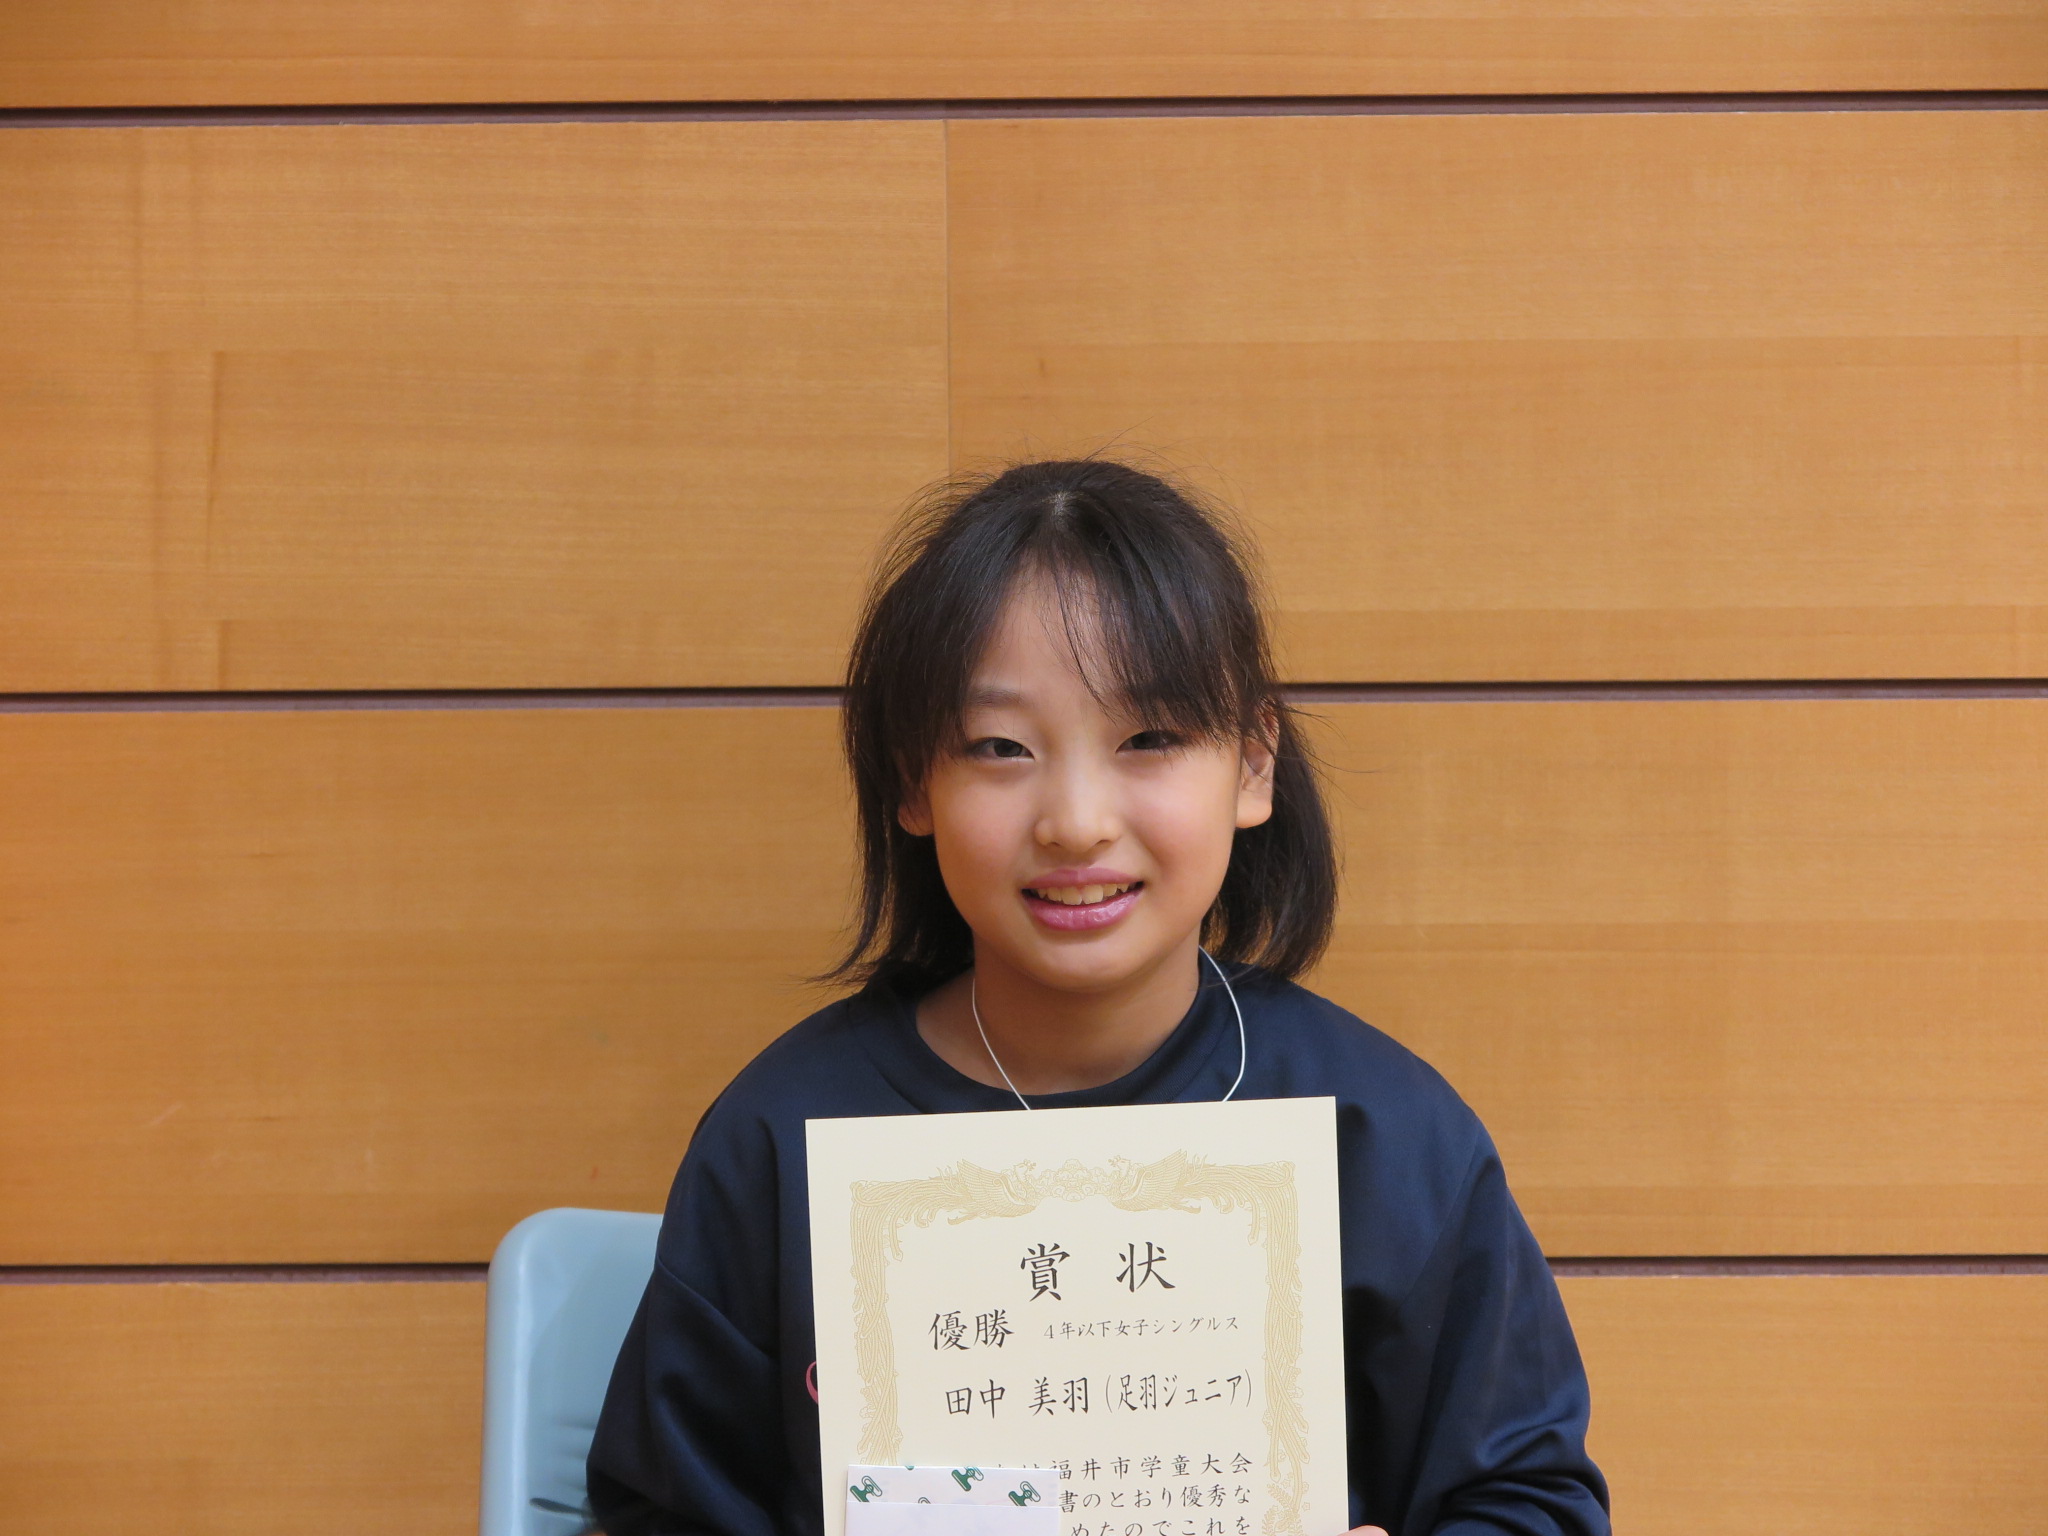 賞状
優勝 4年以下女子シングルス
田中 美羽(足羽ジュニア)
福井市学童大会
書のとおり優秀な
めたのでこれを